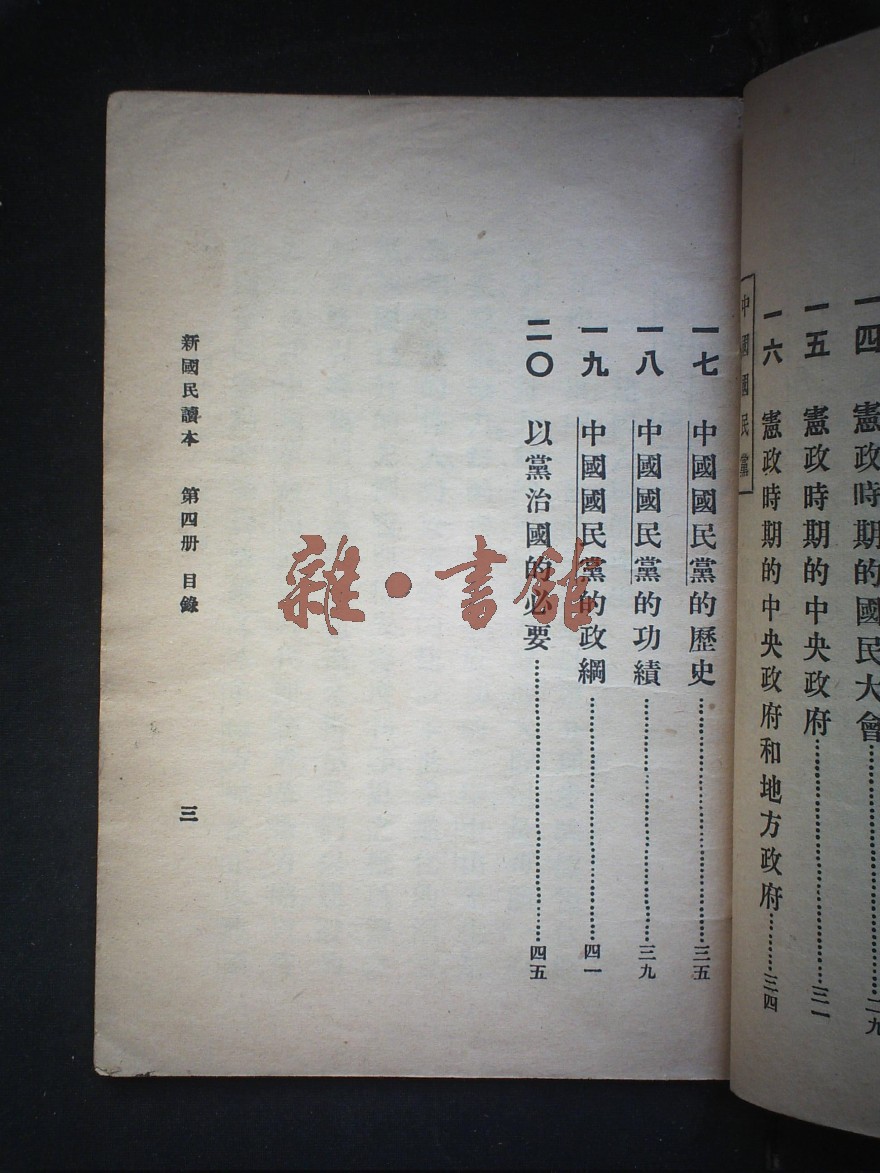 一四 憲政時期的國民大會……二九
一五 憲政時期的中央政府……三一
一六 憲政時期的中央政府和地方政府……三四
中國國民黨
一七 中國國民黨的歷史……三五
一八 中國國民黨的功績……三九
一九 中國國民黨的政綱……四一
二〇 以黨治國的必要……四五
新國民讀本 第四册 目錄 三
雜·書館